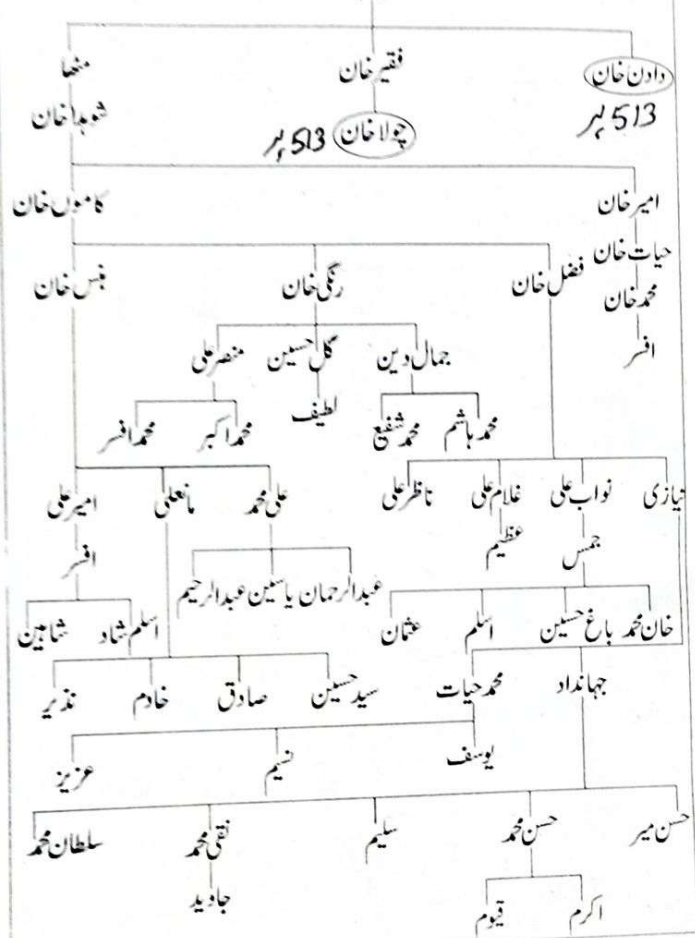 دادن خان
فقیر خان
منھا
513 پر
چولا خان
513 پر
شوہدا خان
امیر خان
کاموں خان
حیات خان
فضل خان
رنگی خان
ہنس خان
محمد خان
افسر
جمال دین
گل حسین
منصر علی
محمد ہاشم
محمد شفیع
لطیف
محمد اکبر
محمد افسر
نیازی
نواب علی
غلام علی
ناظر علی
علی محمد
مانعلی
امیر علی
جمس
عظیم
افسر
عبدالرحمان
یاسین
عبدالرحیم
خان محمد
باغ حسین
اسلم
عثمان
اسلم شاد
شاہین
جہانداد
محمد حیات
سید حسین
صادق
خادم
نذیر
یوسف
نسیم
عزیز
حسن میر
حسن محمد
سلیم
نقی محمد
سلطان محمد
اکرم
قیوم
جاوید